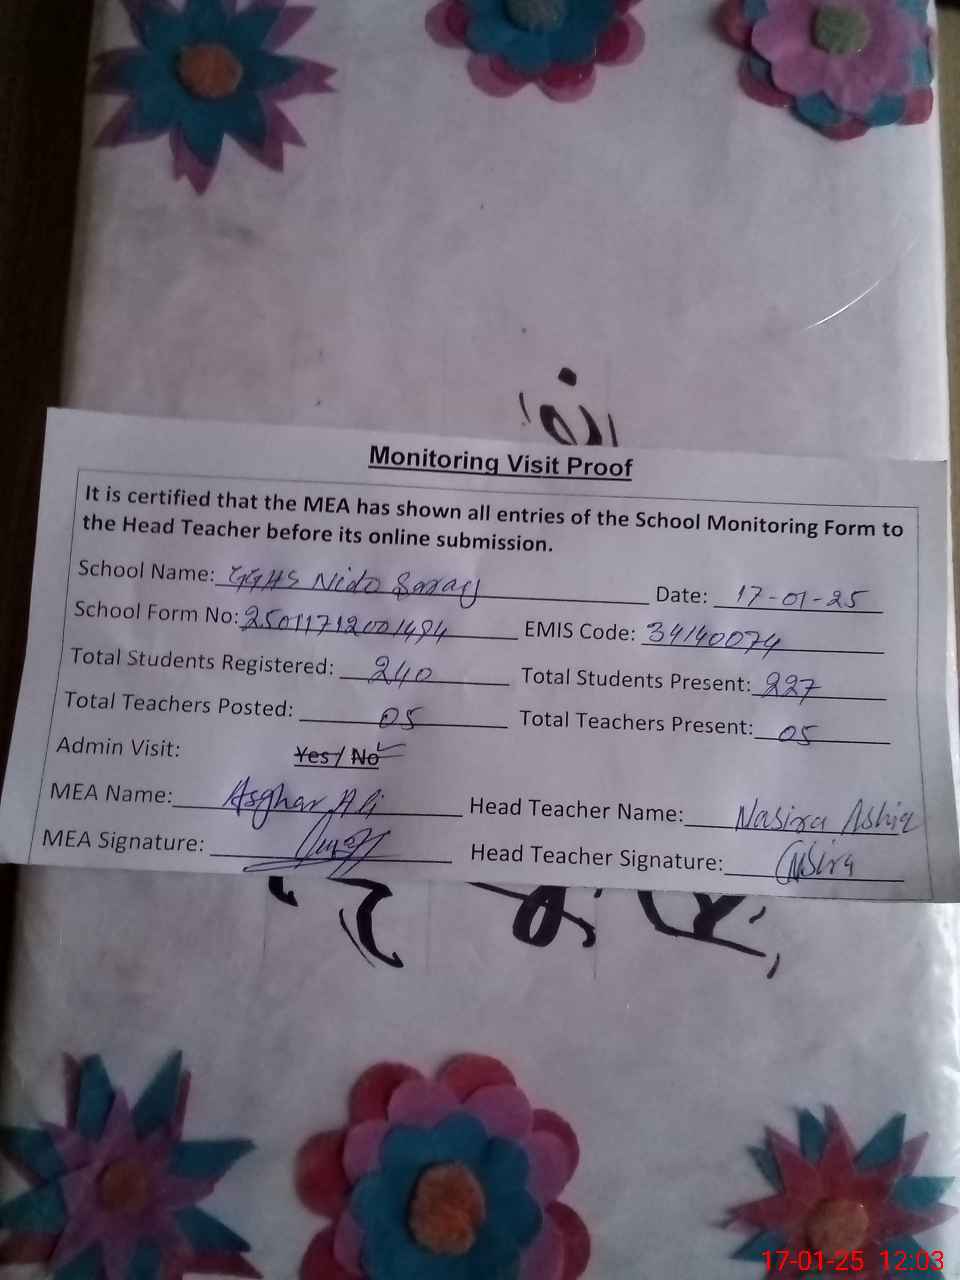 Monitoring Visit Proof
It is certified that the MEA has shown all entries of the School Monitoring Form to
the Head Teacher before its online submission.
School Name: GGHS Nido Saray Date: 17-01-25
School Form No: 25011712001494 EMIS Code: 34140074
Total Students Registered: 240 Total Students Present: 227
Total Teachers Posted: 05 Total Teachers Present: 05
Admin Visit: Yes / No
MEA Name: Asghar Ali Head Teacher Name: Nasira Ashiq
MEA Signature: Head Teacher Signature: Nasira
17-01-25 12:03